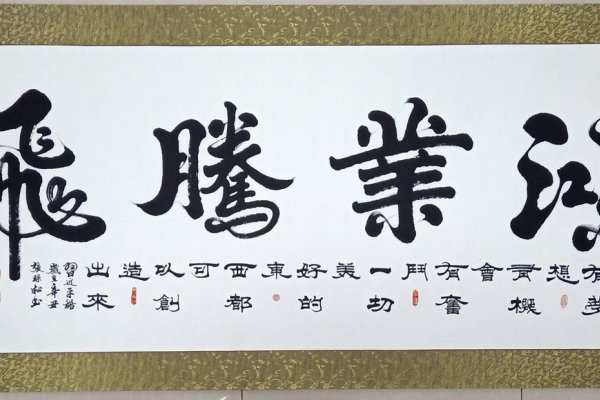 鴻業騰飛
有夢想有機會有奮鬥一切美好的東西都可以創造出來
習近平語
歲在辛丑